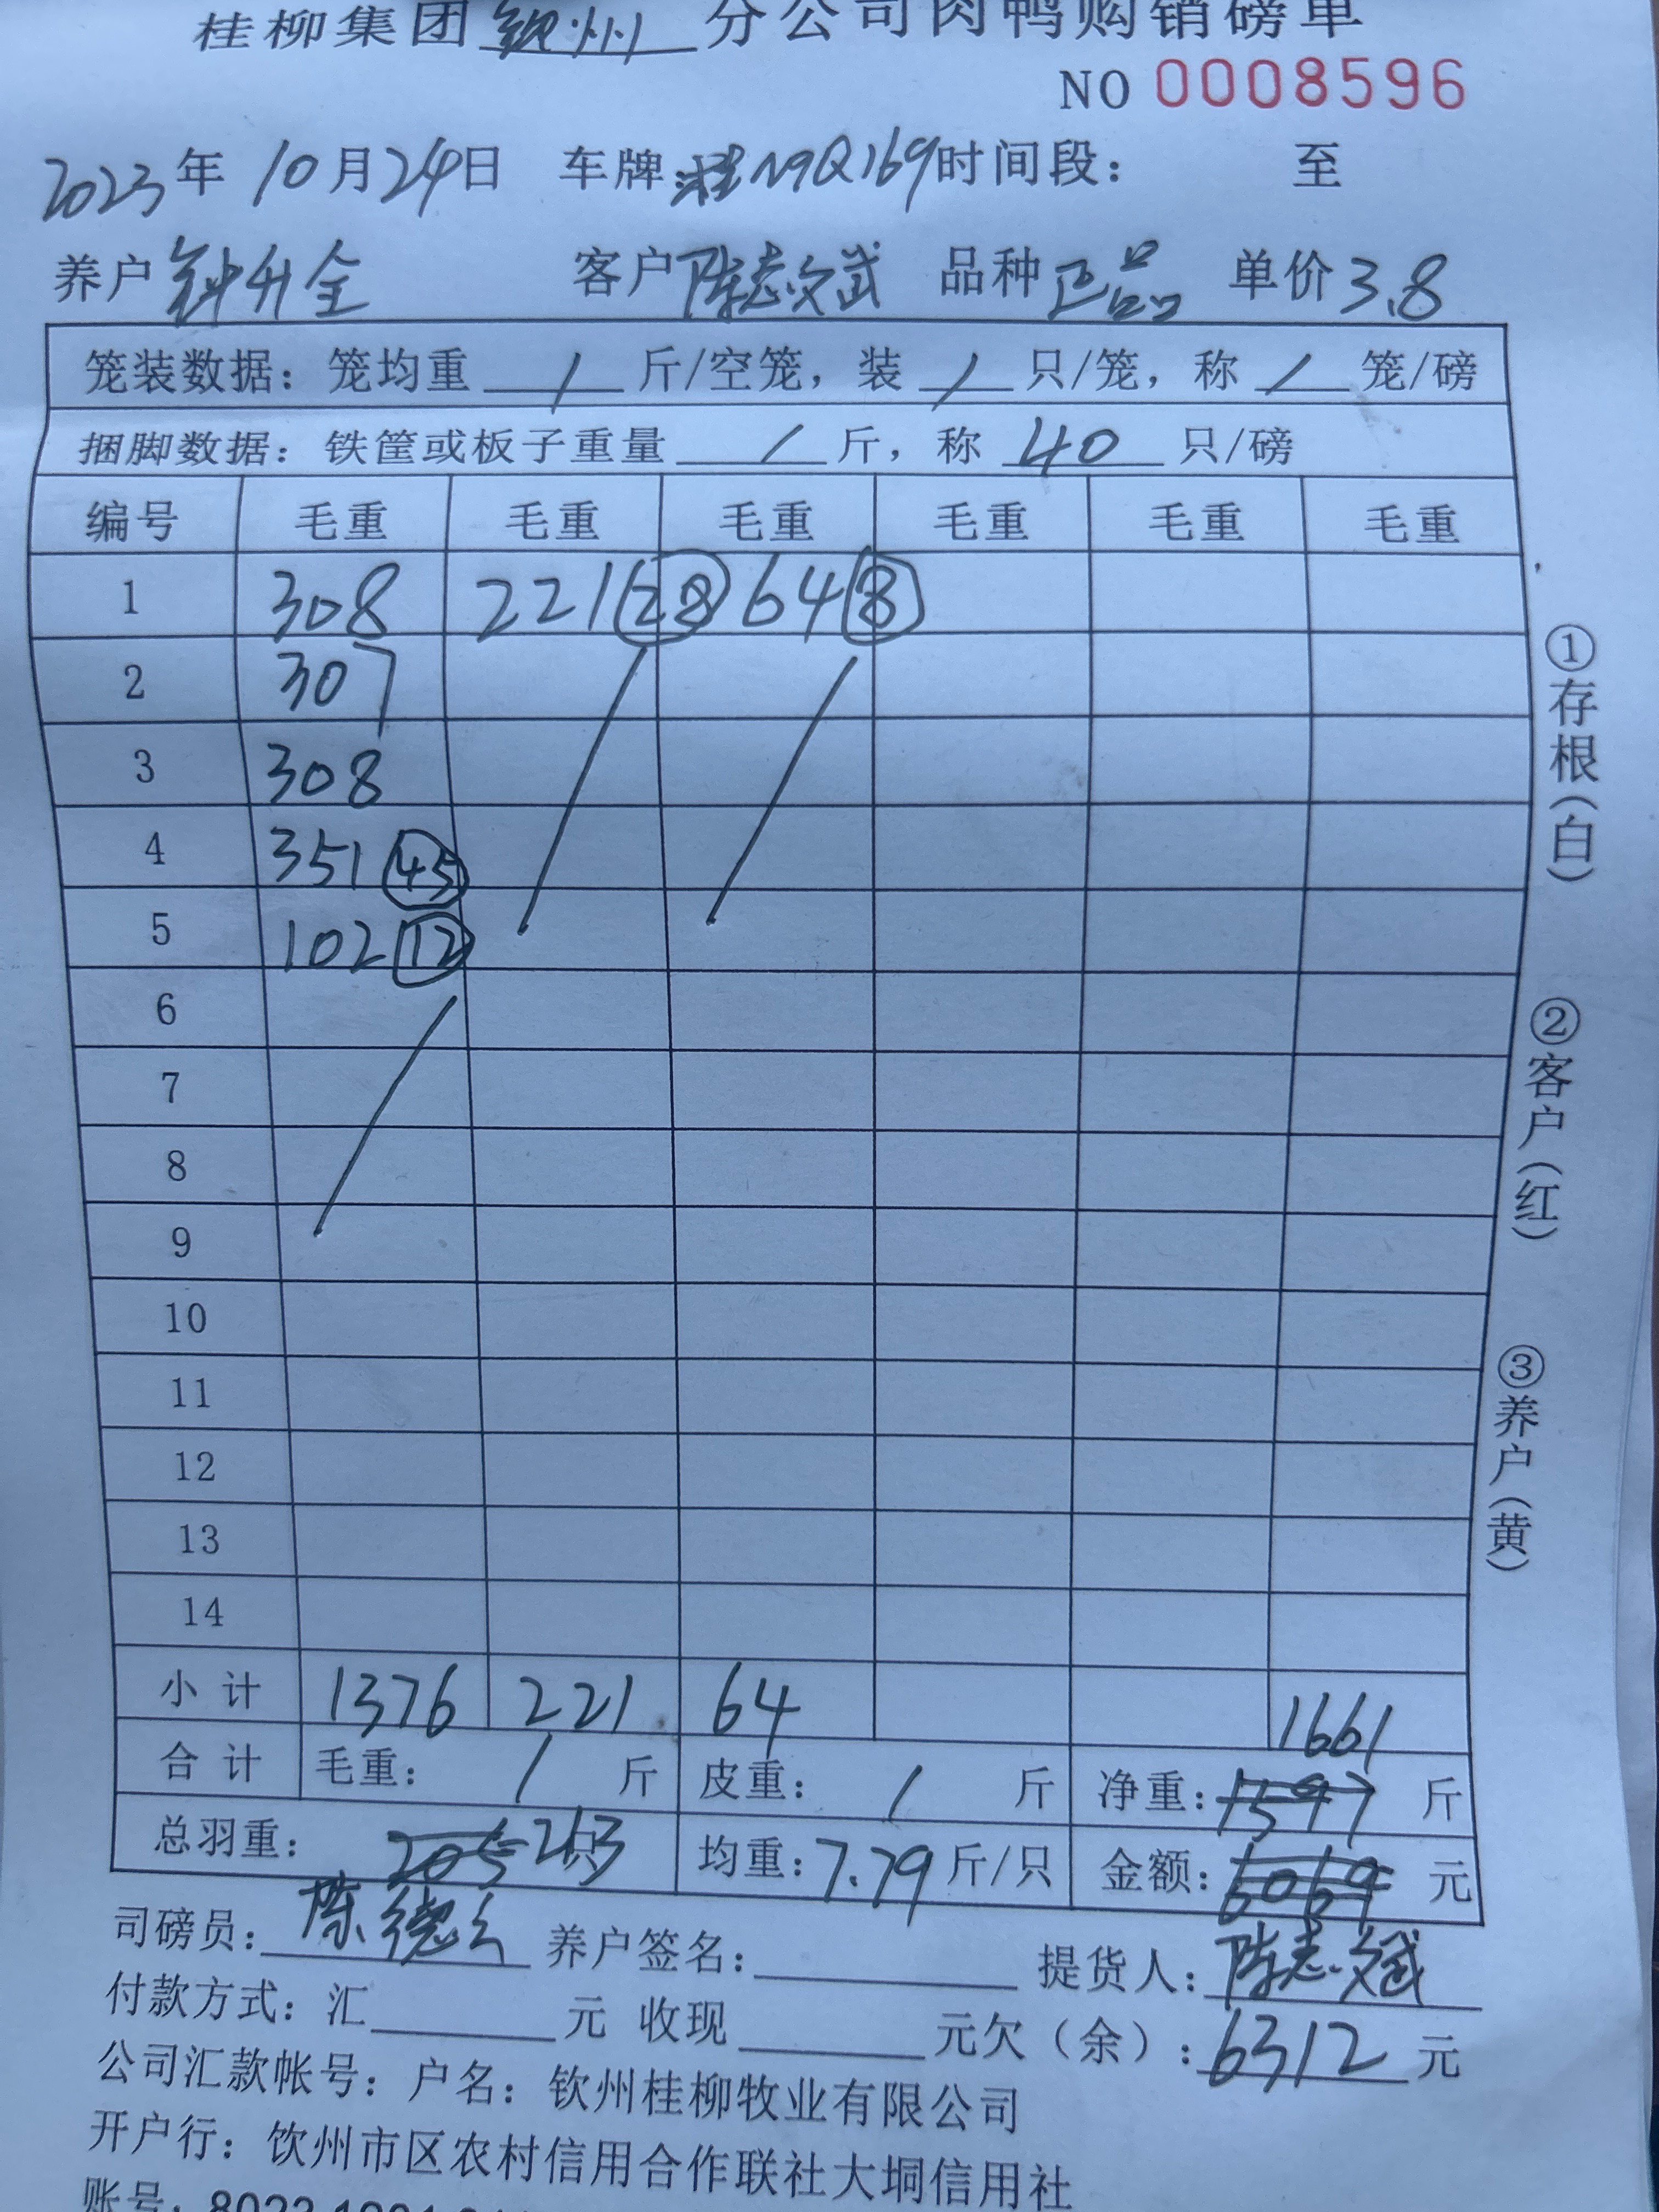 桂柳集团钦州分公司肉鸭购销磅单
NO 0008596
2023年10月24日 车牌:桂N9Q169时间段: 至
养户钟升全 客户陈志斌 品种正品 单价3.8
笼装数据:笼均重 / 斤/空笼,装 / 只/笼,称 / 笼/磅
捆脚数据:铁筐或板子重量 / 斤,称 40 只/磅
编号 毛重 毛重 毛重 毛重 毛重 毛重
1 308 221 28 64 8
2 307
3 308
4 351 45
5 102 12
6
7
8
9
10
11
12
13
14
小计 1376 221 64 1661
合计 毛重: / 斤 皮重: / 斤 净重:1597 斤
总羽重: 205 213 均重:7.79斤/只 金额:6069 元
司磅员:陈德 养户签名: 提货人:陈志斌
付款方式:汇 元 收现 元欠(余):6312 元
公司汇款帐号:户名:钦州桂柳牧业有限公司
开户行:饮州市区农村信用合作联社大垌信用社
账号:8023
①存根(白)
②客户(红)
③养户(黄)